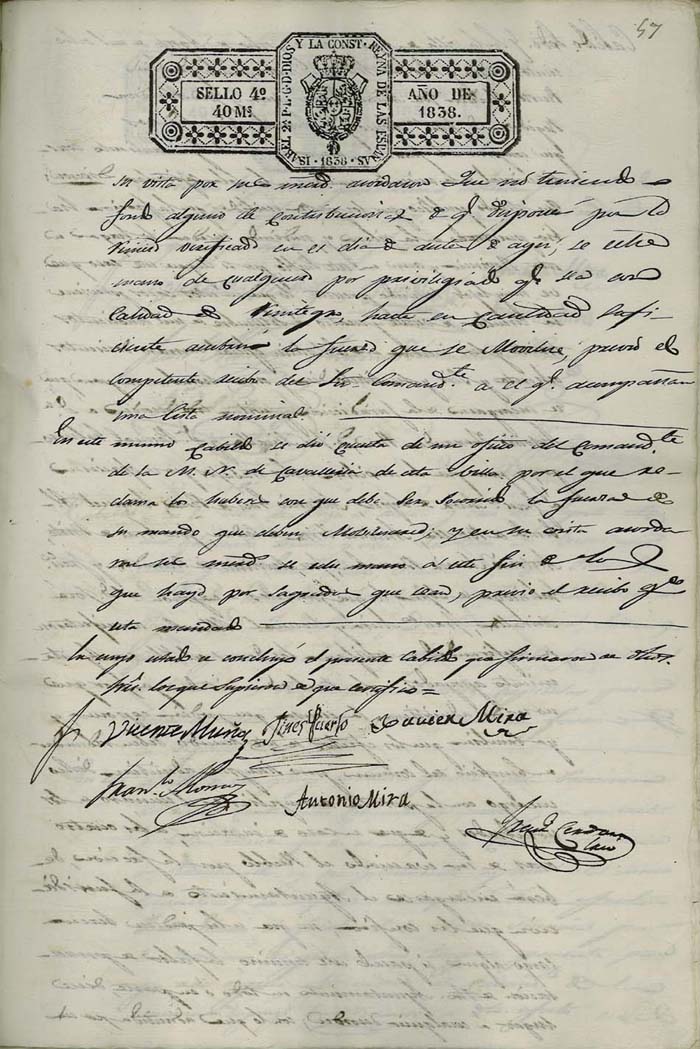 57
SELLO 4º
40 Ms
ISABEL 2ª P. L. G. D. DIOS Y LA CONST. REYNA DE LAS ESPAÑAS
· 1838 ·
AÑO DE
1838.
su vista por sus mercd. acordaron Que no teniendo
fondo alguno de contribucion de q.e disponer por
verificado en el dia de ayer, se
mano de cualquiera por privilegiado q.e sea con
calidad de Reintegro, hasta en cantidad sufi-
ciente la fuerza que se Movilice, previo el
competente recibo del Sr. Comand.te a el q.e acompañara
una lista nominal.
En este mismo Cabildo se dió cuenta de un oficio del Comand.te
de la M. N. de Cavalleria de esta Villa por el que re-
clama los haberes con que debe Ser Socorrida la fuerza de
su mando que deben Mobilizarse; y en su vista acorda
ron sus mercd. se eche mano á este fin de
que haya por Sagrados que sean, previo el recibo q.e
esta mandado
En cuyo estado se concluyó el presente Cabildo que firmaron
los que Supieron de que certifico =
Vicente Muñoz
Gines Puerto
Xavier Mira
Fran.co Alonso
Antonio Mira